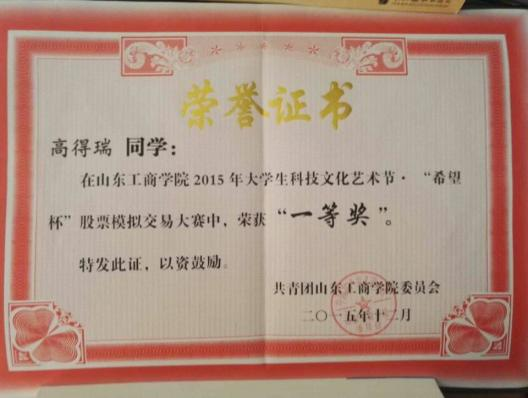 荣誉证书
高得瑞 同学：
在山东工商学院 2015 年大学生科技文化艺术节·“希望
杯”股票模拟交易大赛中，荣获“一等奖”。
特发此证，以资鼓励。
共青团山东工商学院委员会
二〇一五年十二月